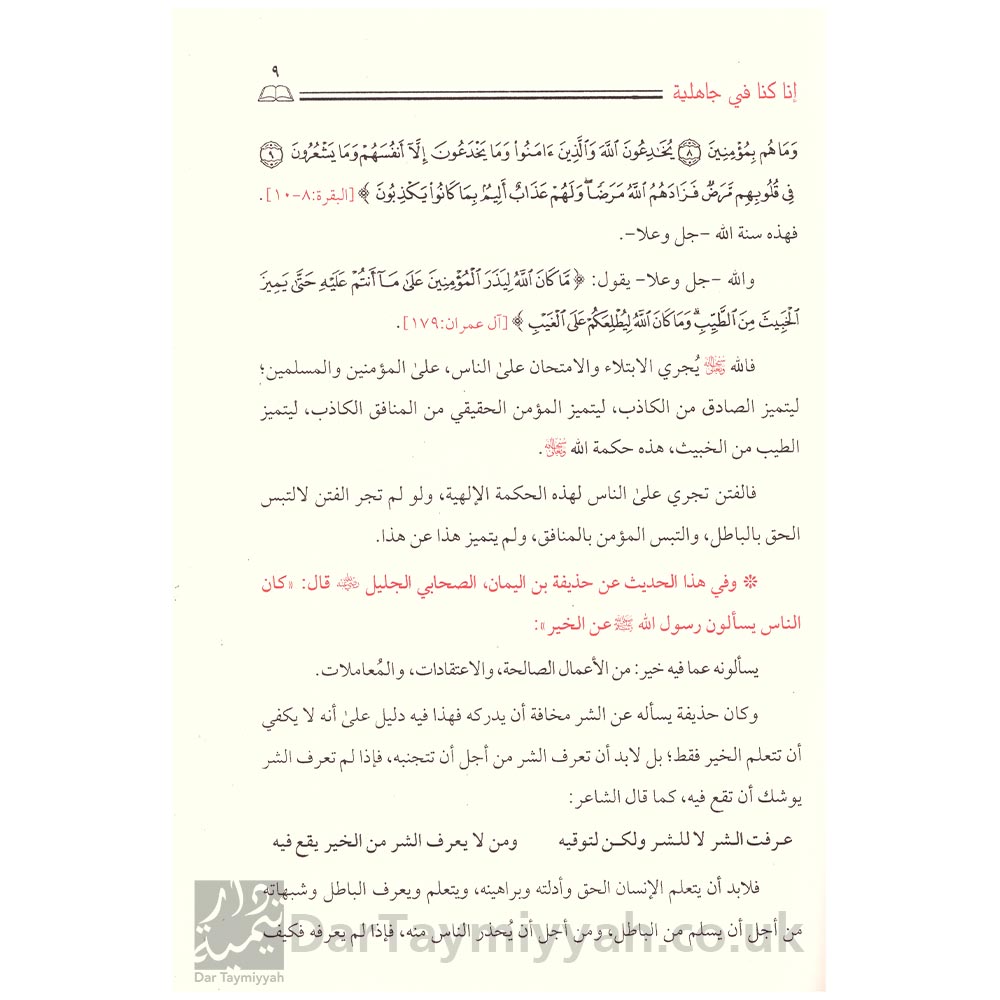 ٩
إنا كنا في جاهلية
وَمَا هُم بِمُؤْمِنِينَ ۝٨ يُخَٰدِعُونَ ٱللَّهَ وَٱلَّذِينَ ءَامَنُوا۟ وَمَا يَخْدَعُونَ إِلَّآ أَنفُسَهُمْ وَمَا يَشْعُرُونَ ۝٩
فِى قُلُوبِهِم مَّرَضٌ فَزَادَهُمُ ٱللَّهُ مَرَضًا ۖ وَلَهُمْ عَذَابٌ أَلِيمٌۢ بِمَا كَانُوا۟ يَكْذِبُونَ ﴾ [البقرة:٨-١٠].
فهذه سنة الله -جل وعلا-.
والله -جل وعلا- يقول: ﴿ مَّا كَانَ ٱللَّهُ لِيَذَرَ ٱلْمُؤْمِنِينَ عَلَىٰ مَآ أَنتُمْ عَلَيْهِ حَتَّىٰ يَمِيزَ
ٱلْخَبِيثَ مِنَ ٱلطَّيِّبِ ۗ وَمَا كَانَ ٱللَّهُ لِيُطْلِعَكُمْ عَلَى ٱلْغَيْبِ ﴾ [آل عمران:١٧٩].
فالله سبحانه وتعالى يُجري الابتلاء والامتحان علىٰ الناس، علىٰ المؤمنين والمسلمين؛
ليتميز الصادق من الكاذب، ليتميز المؤمن الحقيقي من المنافق الكاذب، ليتميز
الطيب من الخبيث، هذه حكمة الله سبحانه وتعالى.
فالفتن تجري علىٰ الناس لهذه الحكمة الإلهية، ولو لم تجر الفتن لالتبس
الحق بالباطل، والتبس المؤمن بالمنافق، ولم يتميز هذا عن هذا.
❊ وفي هذا الحديث عن حذيفة بن اليمان، الصحابي الجليل رضي الله عنه قال: «كان
الناس يسألون رسول الله ﷺ عن الخير»:
يسألونه عما فيه خير: من الأعمال الصالحة، والاعتقادات، والمُعاملات.
وكان حذيفة يسأله عن الشر مخافة أن يدركه فهذا فيه دليل علىٰ أنه لا يكفي
أن تتعلم الخير فقط؛ بل لابد أن تعرف الشر من أجل أن تتجنبه، فإذا لم تعرف الشر
يوشك أن تقع فيه، كما قال الشاعر:
عرفت الشر لا للشر ولكن لتوقيه ومن لا يعرف الشر من الخير يقع فيه
فلابد أن يتعلم الإنسان الحق وأدلته وبراهينه، ويتعلم ويعرف الباطل وشبهاته
من أجل أن يسلم من الباطل، ومن أجل أن يُحذر الناس منه، فإذا لم يعرفه فكيف
دار تيمية
Dar Taymiyyah
DarTaymiyyah.co.uk